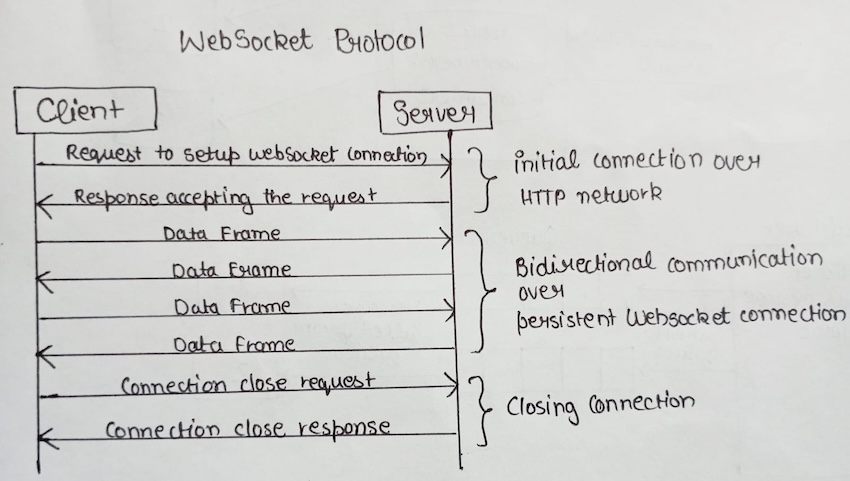 WebSocket Protocol
Client
Server
Request to setup websocket connection
initial connection over
HTTP network
Response accepting the request
Data Frame
Data Frame
Bidirectional communication
over
persistent Websocket connection
Data Frame
Data Frame
Connection close request
Closing connection
Connection close response